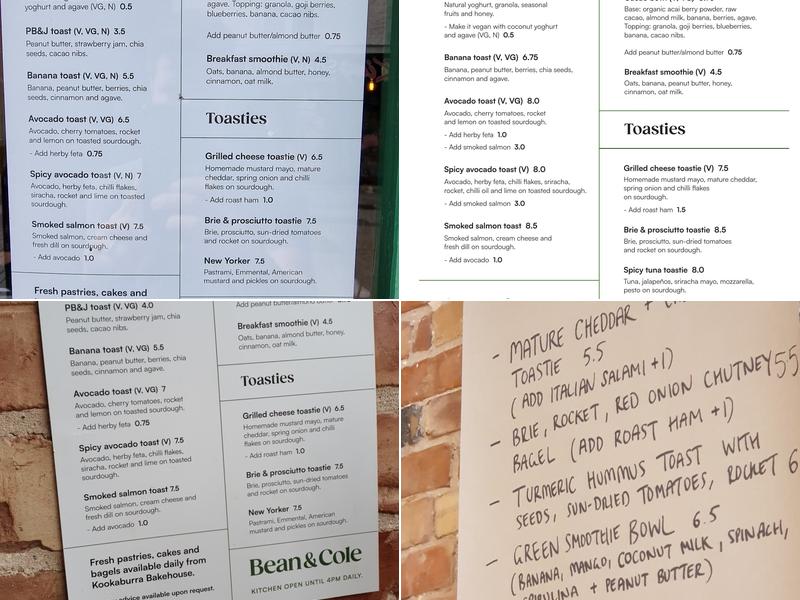 yoghurt and agave (VG, N) 0.5
PB&J toast (V, N) 3.5
Peanut butter, strawberry jam, chia
seeds, cacao nibs.
Banana toast (V, VG, N) 5.5
Banana, peanut butter, berries, chia
seeds, cinnamon and agave.
Avocado toast (V, VG) 6.5
Avocado, cherry tomatoes, rocket
and lemon on toasted sourdough.
- Add herby feta 0.75
Spicy avocado toast (V, N) 7
Avocado, herby feta, chilli flakes,
siracha, rocket and lime on toasted
sourdough.
Smoked salmon toast (V) 7.5
Smoked salmon, cream cheese and
fresh dill on sourdough.
- Add avocado 1.0
Fresh pastries, cakes and
agave. Topping: granola, goji berries,
blueberries, banana, cacao nibs.
Add peanut butter/almond butter 0.75
Breakfast smoothie (V, N) 4.5
Oats, banana, almond butter, honey,
cinnamon, oat milk.
Toasties
Grilled cheese toastie (V) 6.5
Homemade mustard mayo, mature
cheddar, spring onion and chilli
flakes on sourdough.
- Add roast ham 1.0
Brie & prosciutto toastie 7.5
Brie, prosciutto, sun-dried tomatoes
and rocket on sourdough.
New Yorker 7.5
Pastrami, Emmental, American
mustard and pickles on sourdough.
Natural yoghurt, granola, seasonal
fruits and honey.
- Make it vegan with coconut yoghurt
and agave (VG, N) 0.5
Banana toast (V, VG) 6.75
Banana, peanut butter, berries, chia seeds,
cinnamon and agave.
Avocado toast (V, VG) 8.0
Avocado, cherry tomatoes, rocket
and lemon on sourdough.
- Add herby feta 1.0
- Add smoked salmon 3.0
Spicy avocado toast (V) 8.0
Avocado, herby feta, chilli flakes, sriracha,
rocket, chilli oil and lime on sourdough.
- Add smoked salmon 3.0
Smoked salmon toast 8.5
Smoked salmon, cream cheese and
fresh dill on sourdough.
- Add avocado 1.0
Base: organic acai berry powder, raw
cacao, almond milk, banana, berries, agave.
Topping: granola, goji berries, blueberries,
banana, cacao nibs.
Add peanut butter/almond butter 0.75
Breakfast smoothie (V) 4.5
Oats, banana, peanut butter, honey,
cinnamon, oat milk.
Toasties
Grilled cheese toastie (V) 7.5
Homemade mustard mayo, cheddar,
spring onion and chilli flakes
on sourdough.
- Add roast ham 1.5
Brie & prosciutto toastie 8.5
Brie, prosciutto, sun-dried tomatoes
and rocket on sourdough.
Spicy tuna toastie 8.0
Tuna, jalapeños, sriracha mayo, mozzarella,
pesto on sourdough.
PB&J toast (V, VG) 4.0
Peanut butter, strawberry jam, chia
seeds, cacao nibs.
Banana toast (V, VG) 5.5
Banana, peanut butter, berries, chia
seeds, cinnamon and agave.
Avocado toast (V, VG) 7
Avocado, cherry tomatoes, rocket
and lemon on toasted sourdough.
- Add herby feta 0.75
Spicy avocado toast (V) 7.5
Avocado, herby feta, chilli flakes,
siracha, rocket and lime on toasted
sourdough.
Smoked salmon toast 7.5
Smoked salmon, cream cheese and
fresh dill on sourdough.
- Add avocado 1.0
Fresh pastries, cakes and
bagels available daily from
Kookaburra Bakehouse.
advice available upon request.
Add peanut butter/almond butter 0.75
Breakfast smoothie (V) 4.5
Oats, banana, almond butter, honey,
cinnamon, oat milk.
Toasties
Grilled cheese toastie (V) 6.5
Homemade mustard mayo, mature
cheddar, spring onion and chilli
flakes on sourdough.
- Add roast ham 1.0
Brie & prosciutto toastie 7.5
Brie, prosciutto, sun-dried tomatoes
and rocket on sourdough.
New Yorker 7.5
Pastrami, Emmental, American
mustard and pickles on sourdough.
Bean&Cole
KITCHEN OPEN UNTIL 4PM DAILY.
- MATURE CHEDDAR +
TOASTIE 5.5
(ADD ITALIAN SALAMI +1)
- BRIE, ROCKET, RED ONION CHUTNEY 5.5
BAGEL (ADD ROAST HAM +1)
- TURMERIC HUMMUS TOAST WITH
SEEDS, SUN-DRIED TOMATOES, ROCKET 6
- GREEN SMOOTHIE BOWL 6.5
(BANANA, MANGO, COCONUT MILK, SPINACH,
SPIRULINA + PEANUT BUTTER)